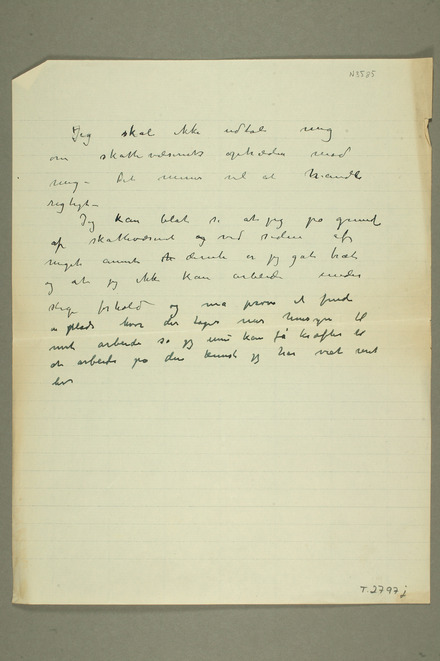 N3585
Jeg skal ikke udtale mig
om skattevæsnets optræden mod
mig – Det mener vel at handle
rigtigt –
Jeg kan blot si at jeg på grund
af skattevæsnet og ved siden af
meget annet er jeg gåt træt
og at jeg ikke kan arbeide under
slige forhold og må prøve at finde
en plads hvor der tages mer hensyn til
mit arbeide så jeg kan få kræfter til
at arbeide på den kunst jeg har viet mit
liv
T.2797j